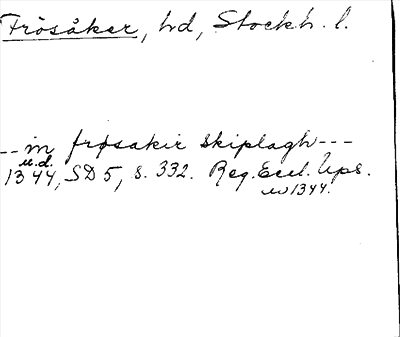 Frösåker, hd, Stockh. l.
--m frøsakir skiplagh---
u.d.
1344, SD 5, s. 332. Reg. Eccl. Ups.
u 1344.